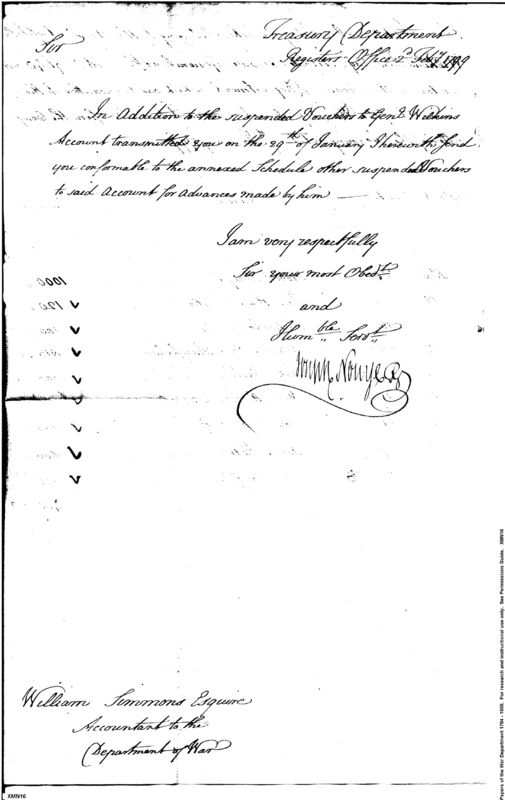 Treasury Department
Sir
Registers Office 2d Feby 1799
In Addition to the suspended Vouchers to Genl. Wilkins
Account transmitted you on the 29th of January I herewith send
you conformable to the annexed Schedule other suspended Vouchers
to said Account for Advances made by him —
I am very respectfully
Sir your most Obedt.
and
Humble Servt.
Joseph Nourse
William Simmons Esquire
Accountant to the
Department of War
Papers of the War Department 1784 - 1800. For research and instructional use only. See Permissions Guide. XMN16
XMN16